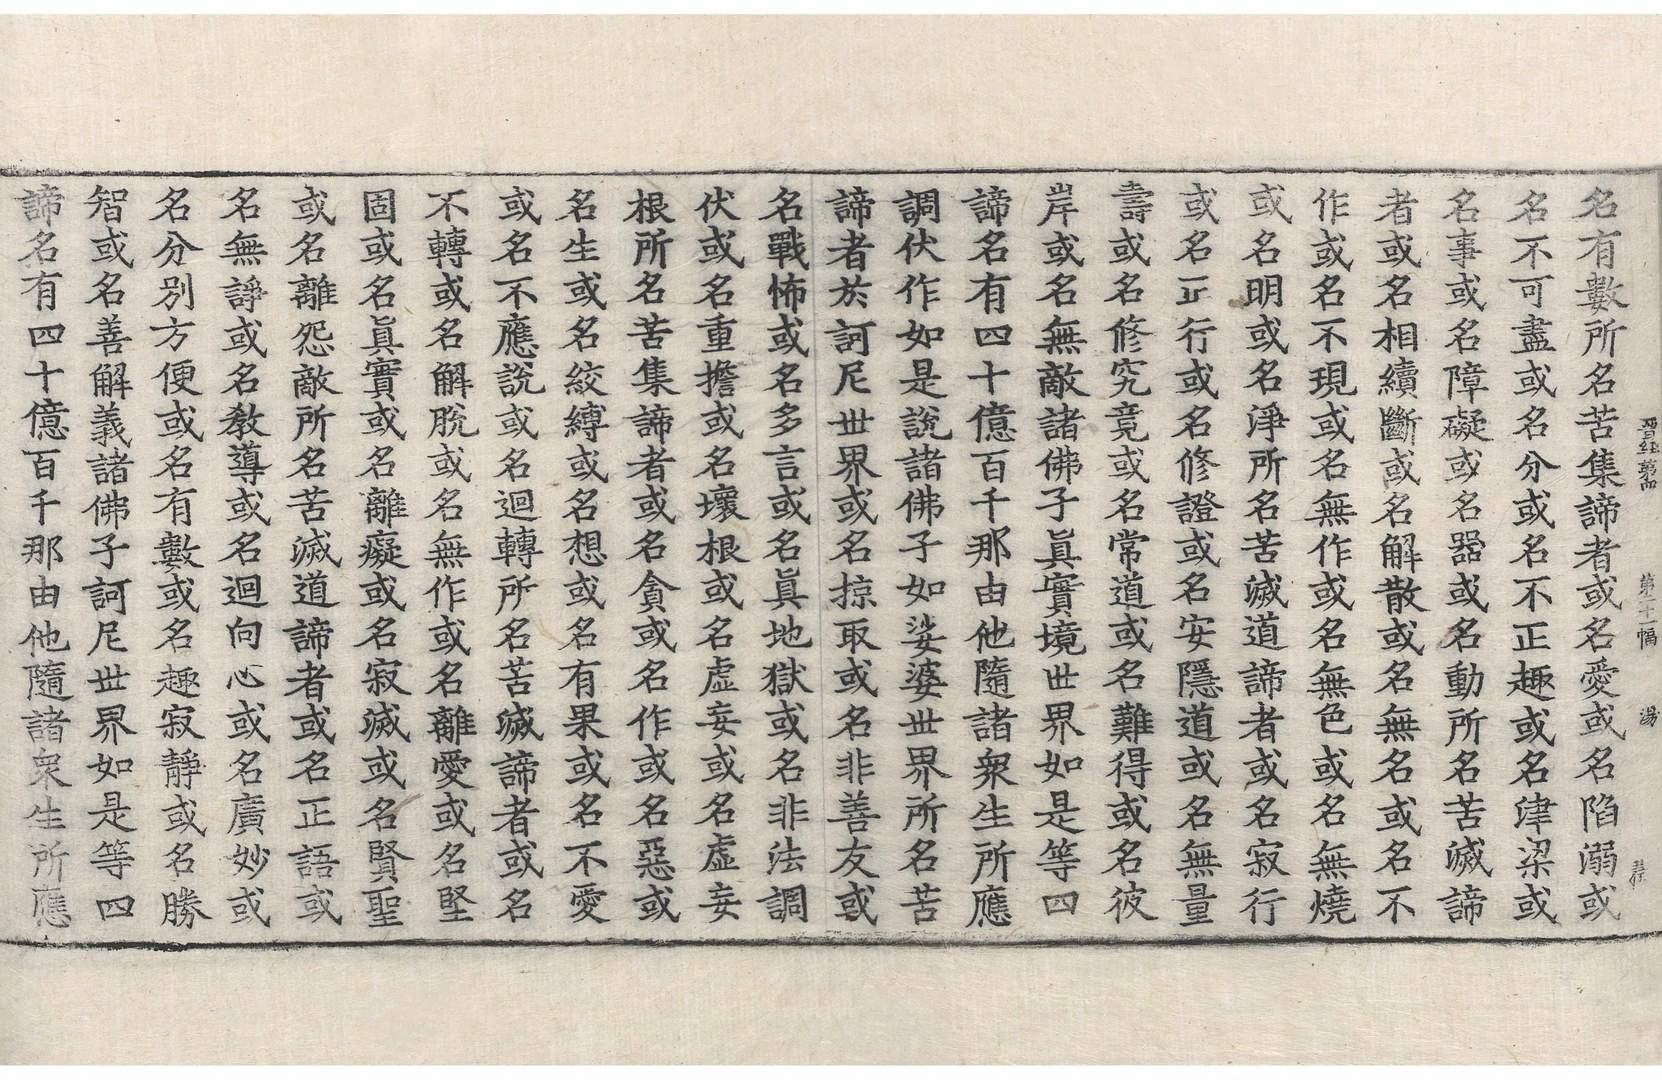 晋經 第四
第二十一幅
湯
名有數所名苦集諦者或名愛或名陷溺或
名不可盡或名分或名不正趣或名津梁或
名事或名障礙或名器或名動所名苦滅諦
者或名相續斷或名解散或名無名或名不
作或名不現或名無作或名無色或名無燒
或名明或名淨所名苦滅道諦者或名寂行
或名正行或名修證或名安隱道或名無量
壽或名修究竟或名常道或名難得或名彼
岸或名無敵諸佛子眞實境世界如是等四
諦名有四十億百千那由他隨諸衆生所應
調伏作如是說諸佛子如娑婆世界所名苦
諦者於訶尼世界或名掠取或名非善友或
名戰怖或名多言或名眞地獄或名非法調
伏或名重擔或名壞根或名虛妄或名虛妄
根所名苦集諦者或名貪或名作或名惡或
名生或名絞縛或名想或名有果或名不愛
或名不應說或名迴轉所名苦滅諦者或名
不轉或名解脫或名無作或名離愛或名堅
固或名眞實或名離癡或名寂滅或名賢聖
或名離怨敵所名苦滅道諦者或名正語或
名無諍或名教導或名迴向心或名廣妙或
名分別方便或名有數或名趣寂靜或名勝
智或名善解義諸佛子訶尼世界如是等四
諦名有四十億百千那由他隨諸衆生所應